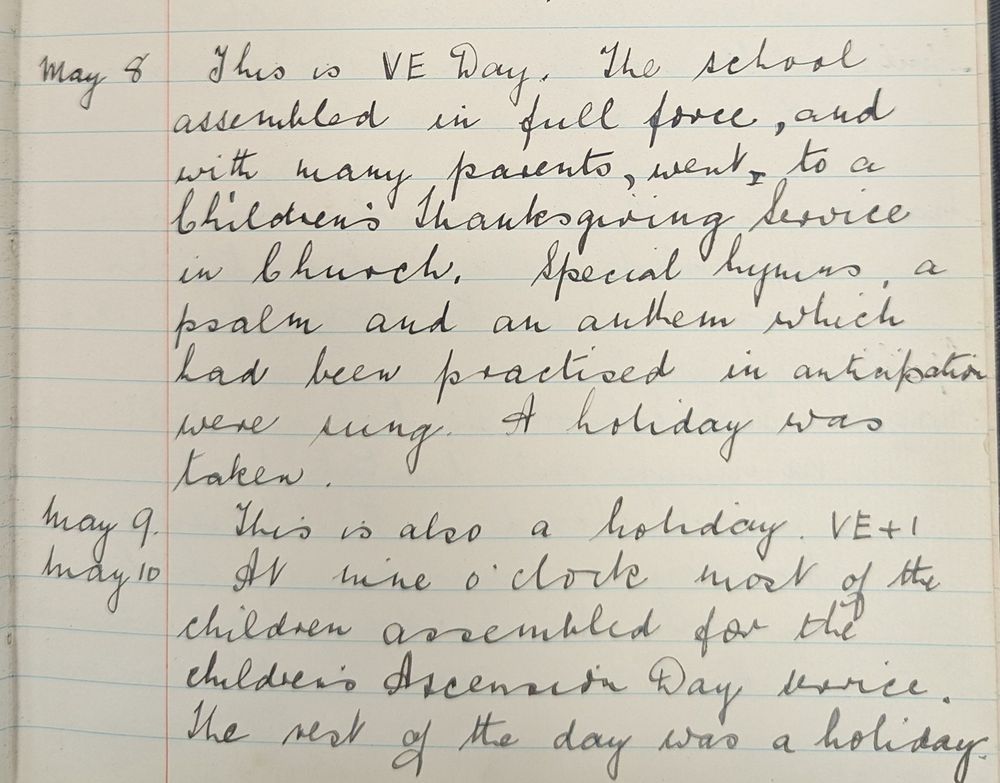 May 8 This is VE Day. The school
assembled in full force, and
with many parents, went, to a
Children's Thanksgiving Service
in Church. Special hymns, a
psalm and an anthem which
had been practised in anticipation
were sung. A holiday was
taken.
May 9. This is also a holiday. VE+1
May 10 At nine o'clock most of the
children assembled for the
children's Ascension Day service.
The rest of the day was a holiday.